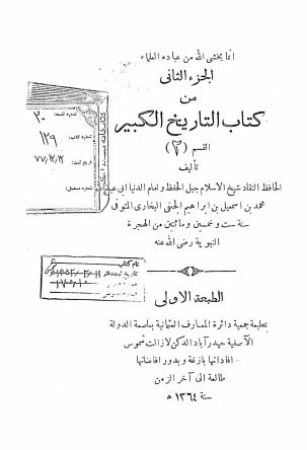 انما يخشى الله من عباده العلماء
الجزء الثانى
من
كتاب التاريخ الكبير
القسم (٢)
تأليف
الحافظ النقاد شيخ الاسلام جبل الحفظ وامام الدنيا ابى عبد الله
محمد بن اسمعيل بن ابراهيم الجعفى البخارى المتوفى
سنة ست وخمسين ومائتين من الهجرة
النبوية رضى الله عنه
الطبعة الاولى
بمطبعة جمعية دائرة المعارف العثمانية بعاصمة الدولة
الآصفية حيدرآباد الدكن لازالت شموس
افاداتها بازغة وبدور افاضاتها
طالعة الى آخر الزمن
سنة ١٣٦٤ ھ
٢٠
شماره كتاب:
١٢٩